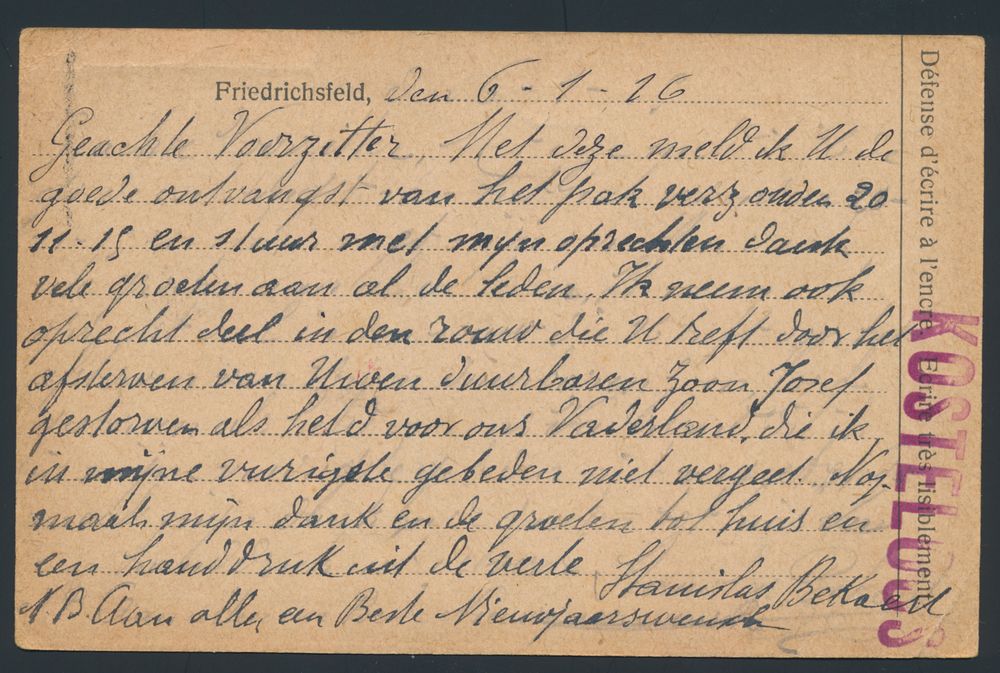 Friedrichsfeld, den 6 - 1 - 16
Geachte Voorzitter, Met deze meld ik U de
goede ontvangst van het pak verzonden 20
11-15 en stuur met mijn oprechten dank
vele groeten aan al de leden. Ik neem ook
oprecht deel in den rouw die U treft door het
afsterven van Uwen duurbaren zoon Josef
gestorven als held voor ons Vaderland, die ik
in mijne vurigste gebeden niet vergeet. Nog-
maals mijn dank en de groeten tot huis en
een handdruk uit de verte Stanislas BeKaert
N.B. Aan allen een Beste Nieuwjaarswensch
Défense d'écrire à l'encre Ecrire très lisiblement
KOSTELOOS